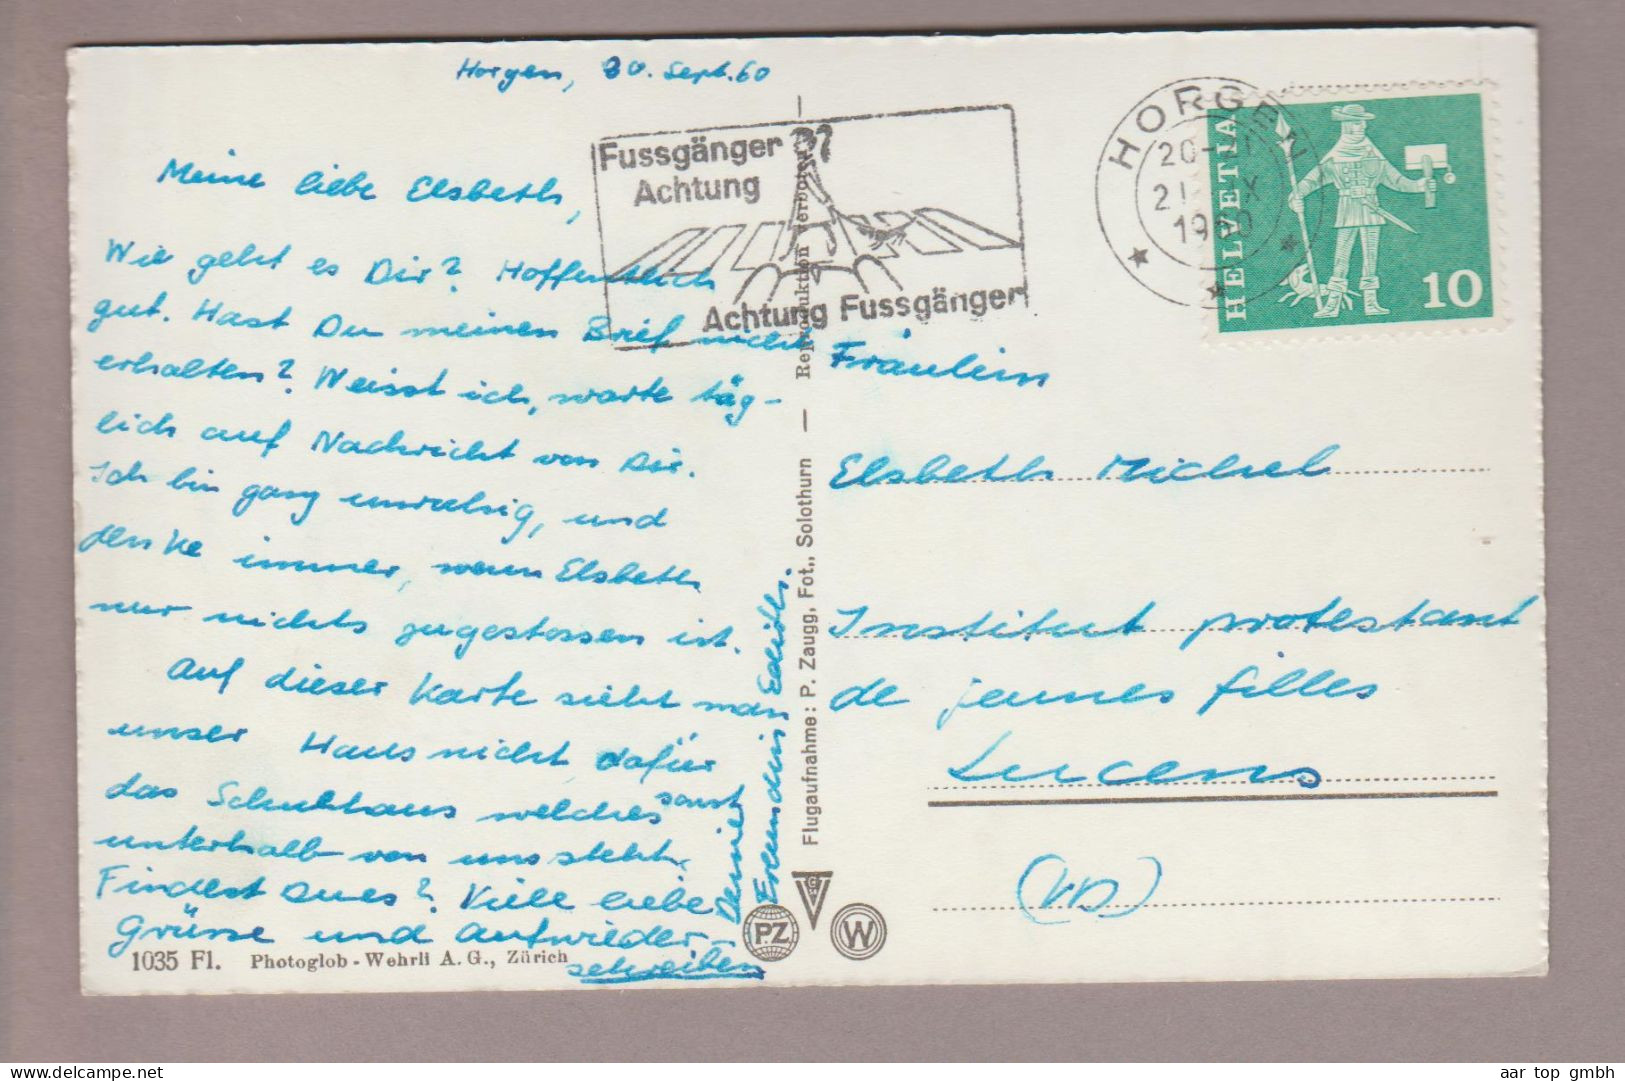 Horgen, 20. Sept. 60
Meine liebe Elsbeth,
Wie geht es Dir? Hoffentlich
gut. Hast Du meinen Brief nicht
erhalten? Weisst ich, warte täg-
lich auf Nachricht von Dir.
Ich bin ganz unruhig, und
denke immer, wenn Elsbeth
nur nichts zugestossen ist.
Auf dieser Karte sieht man
unser Haus nicht, dafür
das Schulhaus welches sonst
unterhalb von uns steht.
Findest Du es? Viele liebe
Grüsse und aufwieder-
schreiben
Deine
Freundin Edith.
1035 Fl. Photoglob - Wehrli A. G., Zürich
Fussgänger
Achtung
Achtung Fussgänger
Flugaufnahme: P. Zaugg, Fot., Solothurn — Reproduktion verboten
PZ
G
W
HORGEN
20-
21. IX
1960
HELVETIA
10
Fräulein
Elsbeth Michel
Institut protestant
de jeunes filles
Lucens
(VD)
aar top gmbh